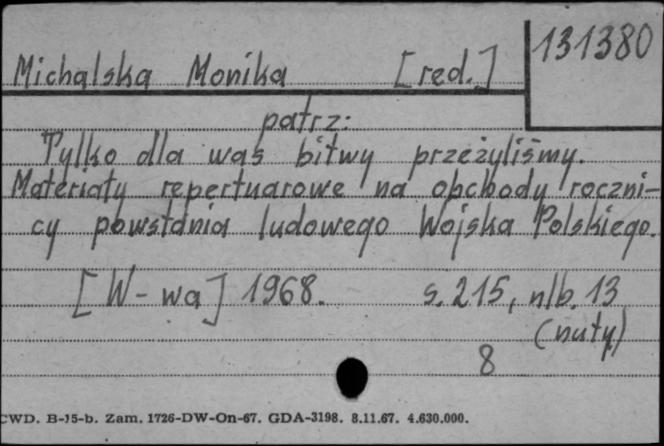 131380
Michalska Monika [red.]
patrz:
Tylko dla was bitwy przeżyliśmy.
Materiały repertuarowe na obchody roczni-
cy powstania ludowego Wojska Polskiego.
[W-wa] 1968. s. 215, nlb. 13
(nuty)
8
CWD. B-15-b. Zam. 1726-DW-On-67. GDA-3198. 8.11.67. 4.630.000.